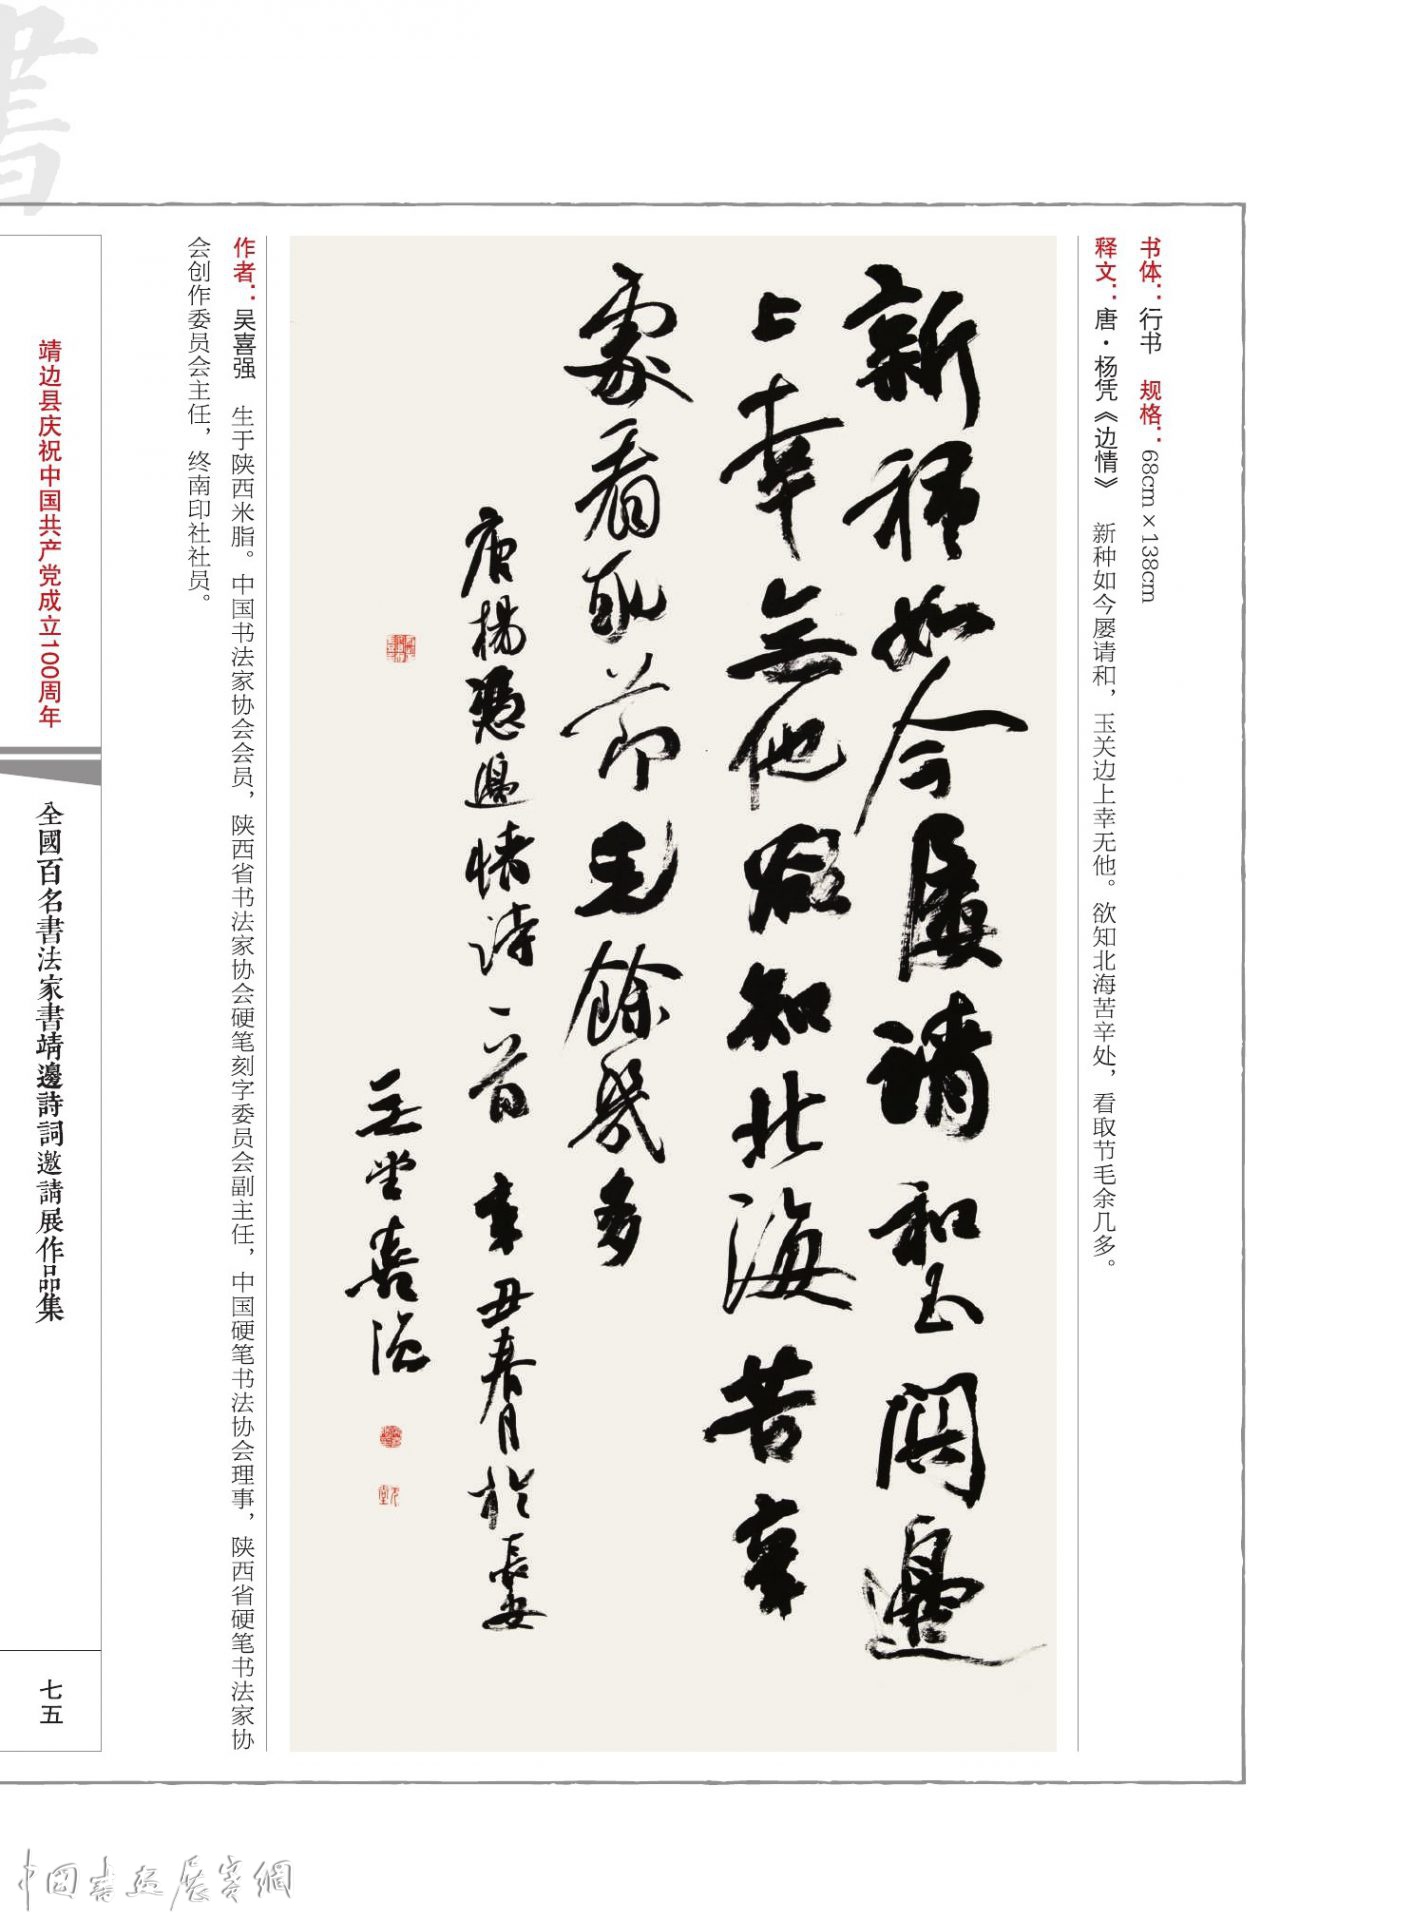 书体：行书　规格：68cm×138cm
释文：唐·杨凭《边情》　新种如今屡请和，玉关边上幸无他。欲知北海苦辛处，看取节毛余几多。
新種如今屢請和玉關邊
上幸無他欲知北海苦辛
處看取節毛餘幾多
唐楊憑邊情詩一首辛丑春月於長安
喜強
作者：吴喜强　生于陕西米脂。中国书法家协会会员，陕西省书法家协会硬笔刻字委员会副主任，中国硬笔书法协会理事，陕西省硬笔书法家协
会创作委员会主任，终南印社社员。
靖边县庆祝中国共产党成立100周年
全國百名書法家書靖邊詩詞邀請展作品集
七五
書
中國書画展賽網